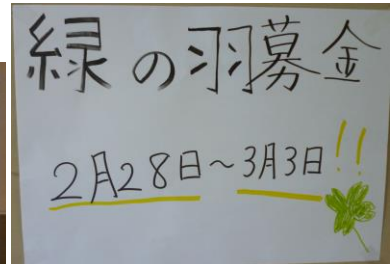 緑の羽募金
2月28日~3月3日!!